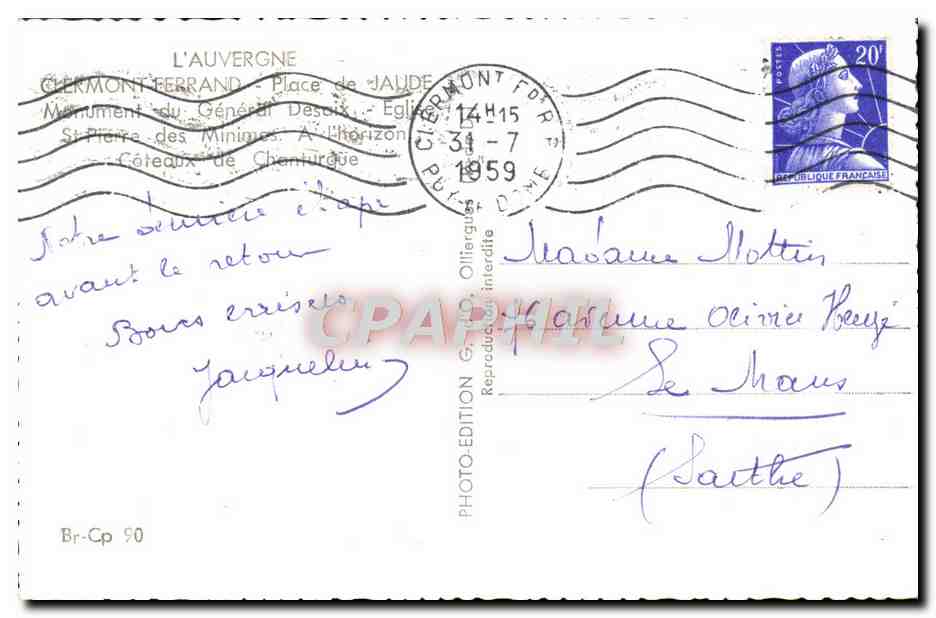 L'AUVERGNE
CLERMONT-FERRAND - Place de JAUDE
Monument du Général Desaix - Eglise
St-Pierre des Minimes. A l'horizon
Côteaux de Chanturgue
CLERMONT Fd R.P.
14H15
31-7
1959
PUY DE DOME
POSTES
20F
REPUBLIQUE FRANÇAISE
Notre dernière étape
avant le retour
Bons baisers
Jacqueline
CPAPHIL
PHOTO-EDITION G. d'O. Olliergues
Reproduction interdite
Madame Mottin
76 avenue Olivier Heuzé
Le Mans
(Sarthe)
Br-Cp 90